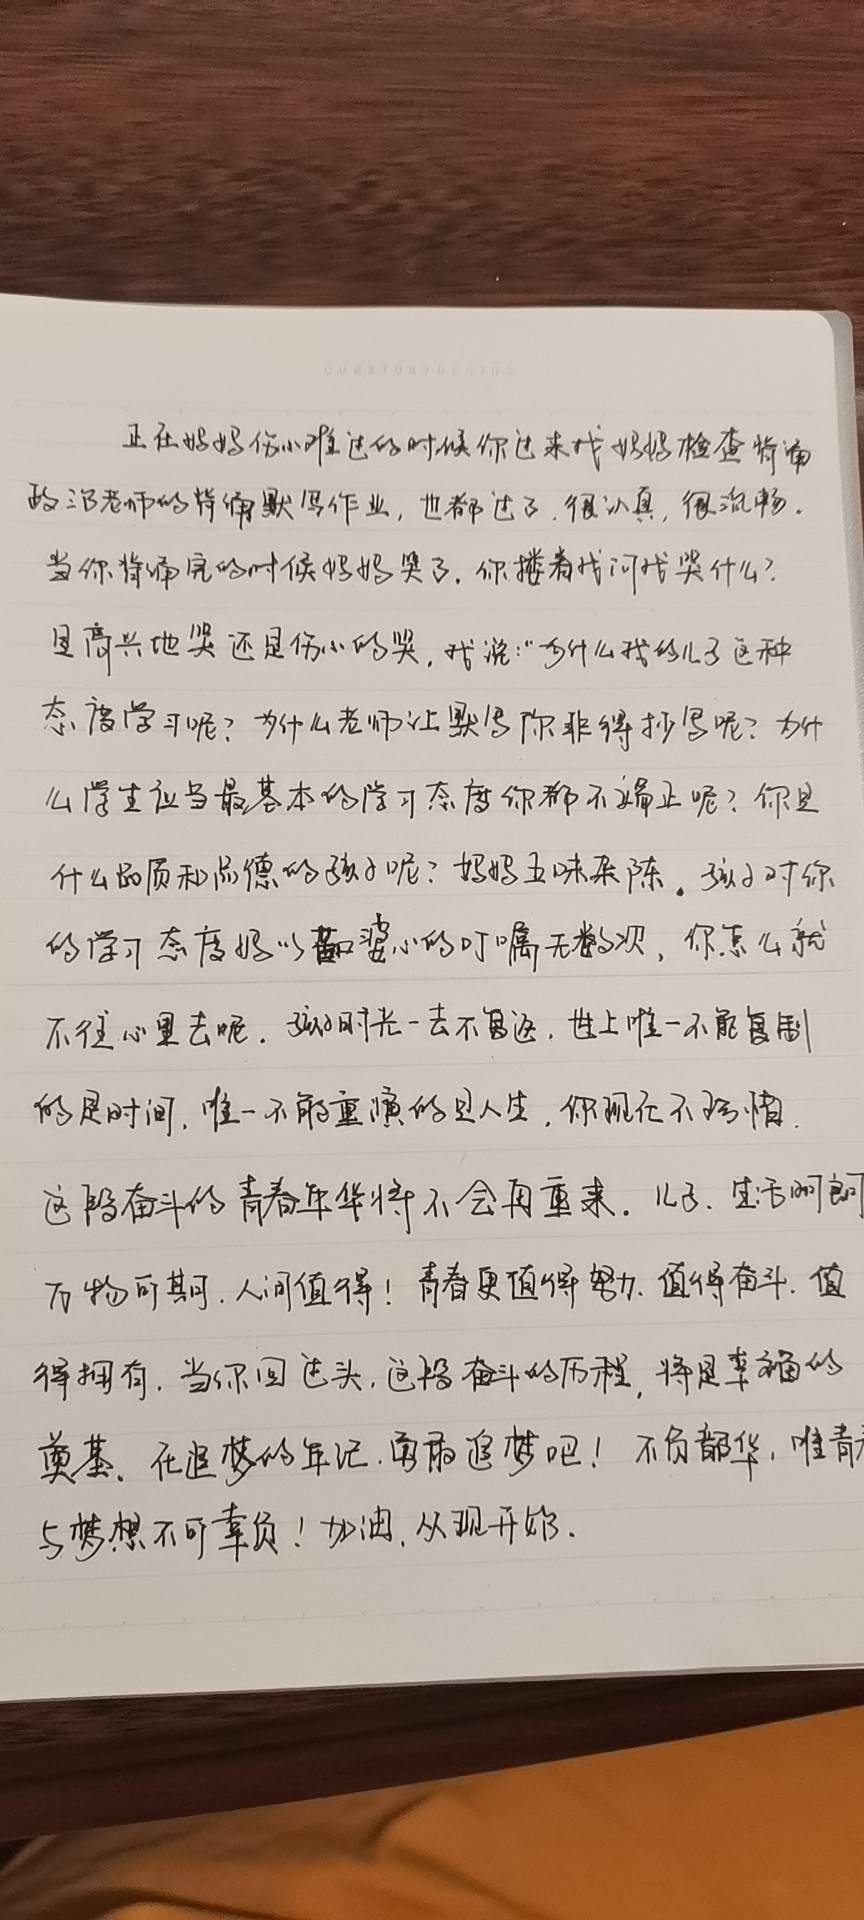 OURSTORYBEGINS
正在妈妈伤心难过的时候你过来找妈妈检查背诵
政治老师的背诵默写作业，也都过了，很认真，很流畅。
当你背诵完的时候妈妈哭了，你搂着我问我哭什么？
是高兴地哭还是伤心的哭，我说：“为什么我的儿子这种
态度学习呢？为什么老师让默写你非得抄写呢？为什
么学生应当最基本的学习态度你都不端正呢？你是
什么品质和品德的孩子呢？妈妈五味杂陈。孩子对你
的学习态度妈妈苦口婆心的叮嘱无数次，你怎么就
不往心里去呢。孩子时光一去不复返，世上唯一不能复制
的是时间，唯一不能重演的是人生，你现在不珍惜，
这段奋斗的青春年华将不会再重来。儿子，生活明朗
万物可期，人间值得！青春更值得努力、值得奋斗、值
得拥有，当你回过头，这段奋斗的历程，将是幸福的
奠基。在追梦的年纪，勇敢追梦吧！不负韶华，唯青春
与梦想不可辜负！加油，从现开始。